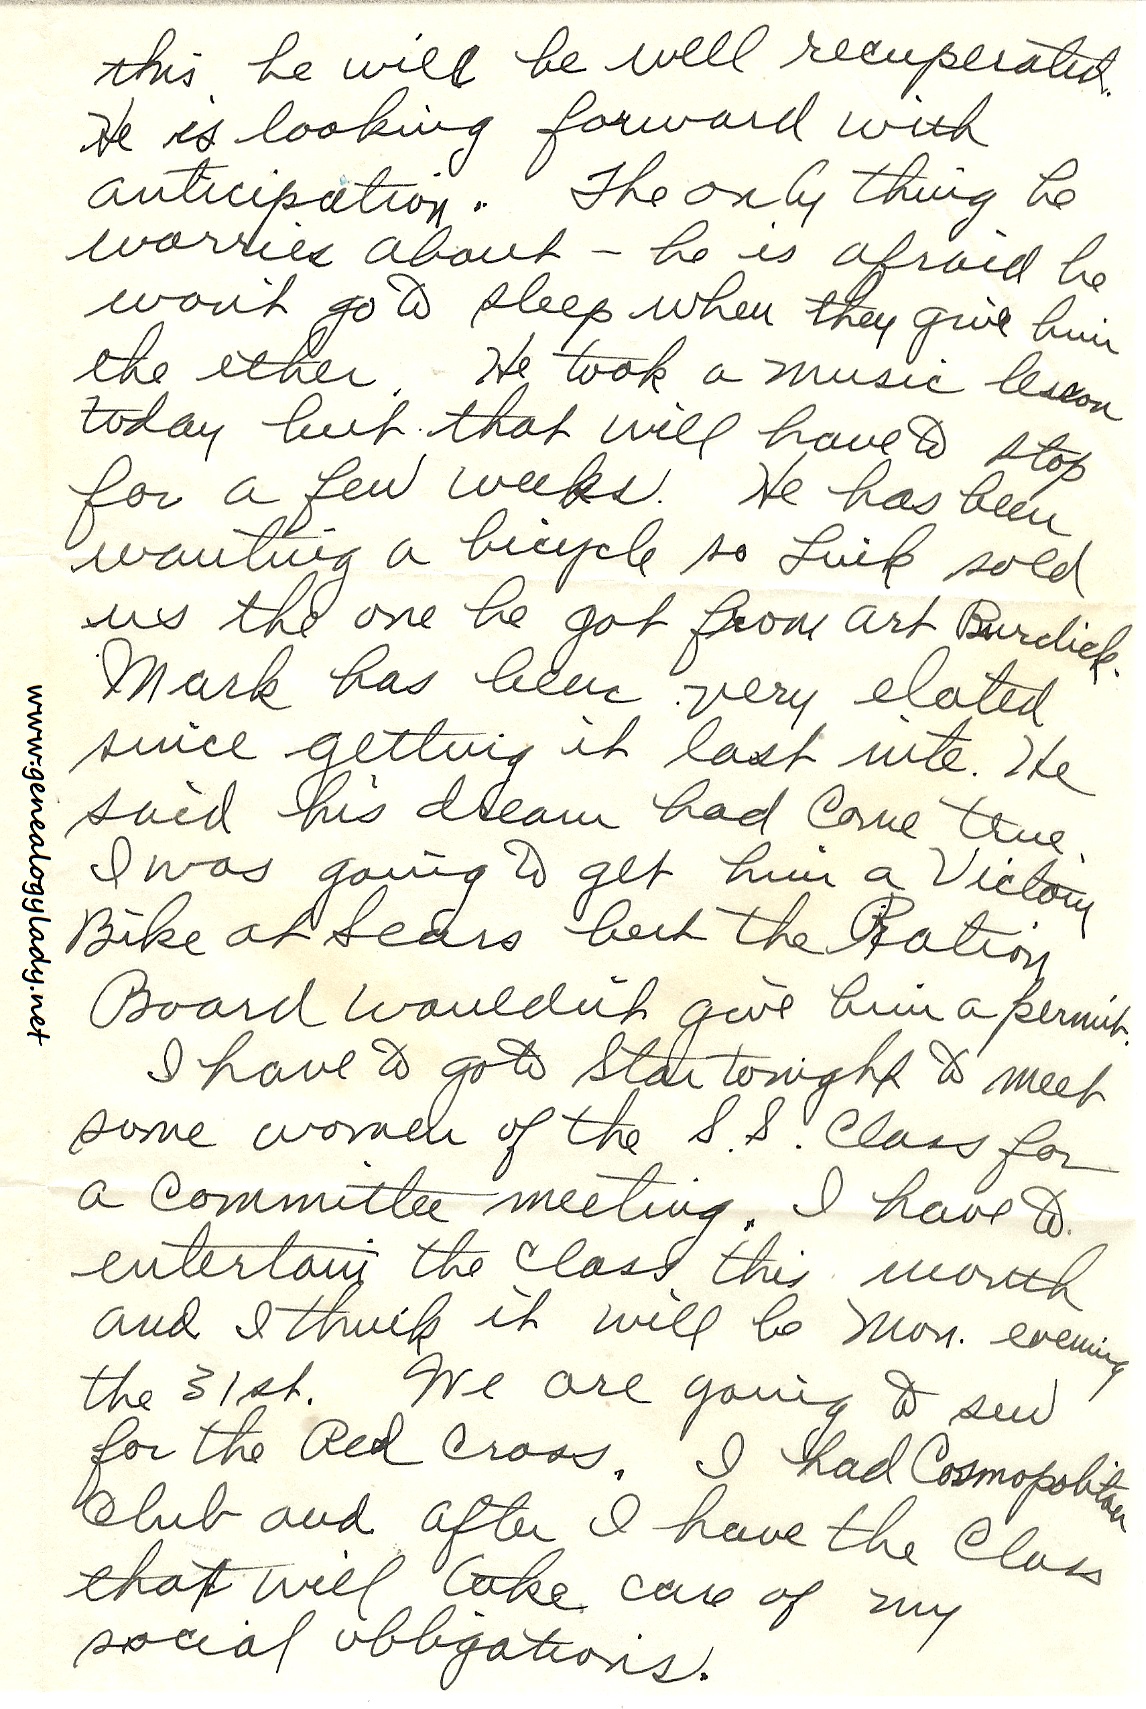 this he will be well recuperated.
He is looking forward with
anticipation. The only thing he
worries about – he is afraid he
won't go to sleep when they give him
the ether. He took a music lesson
today but that will have to stop
for a few weeks. He has been
wanting a bicycle so Luik sold
us the one he got from Art Burdick.
Mark has been very elated
since getting it last nite. He
said his dream had come true.
I was going to get him a Victory
Bike at Sears but the Ration
Board wouldn't give him a permit.
I have to go to Star tonight to meet
some women of the S.S. Class for
a committee meeting. I have to
entertain the class this month
and I think it will be Mon. evening
the 31st. We are going to sew
for the Red Cross. I had Cosmopolitan
Club and after I have the Class
that will take care of my
social obligations.
www.genealogylady.net